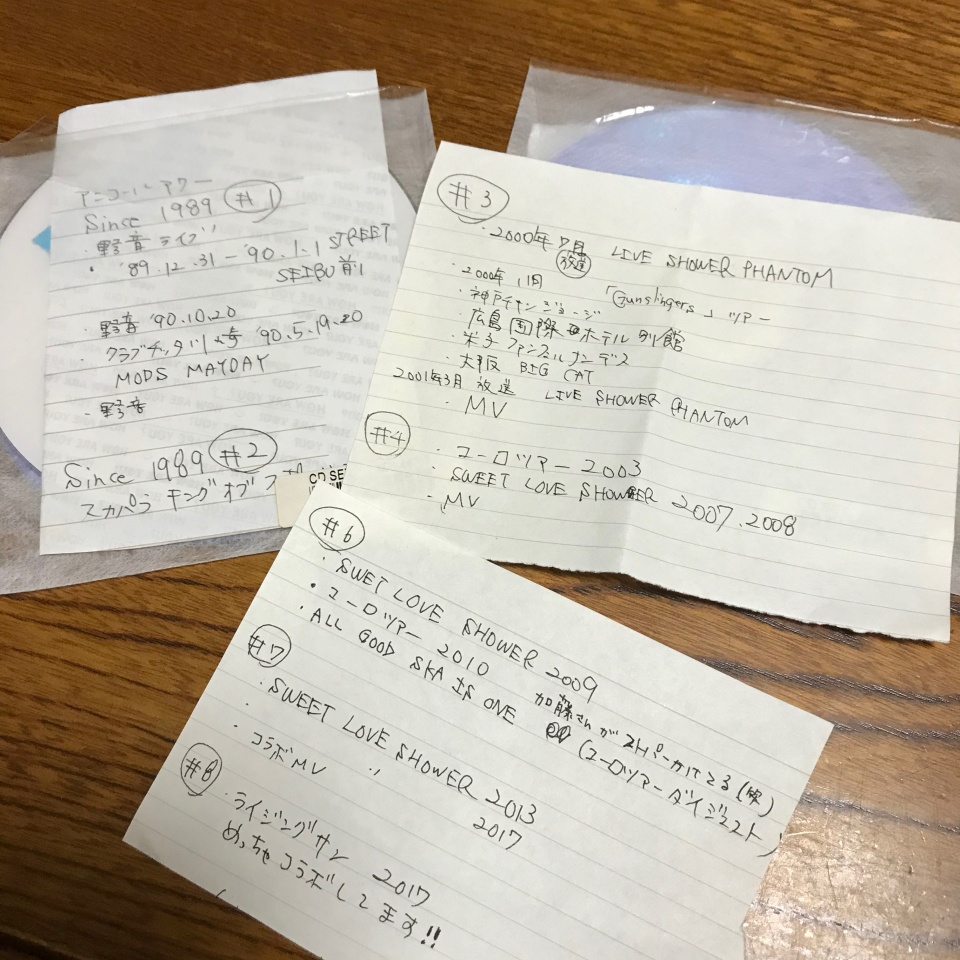 アンコールアワー
Since 1989 #1
・野音ライブ
・'89.12.31-'90.1.1 STREET
SEIBU前
・野音'90.10.20
・クラブチッタ川崎'90.5.19.20
MODS MAYDAY
・野音
Since 1989 #2
スカパラ キングオブス
CD SE
#3
・2000年7月 LIVE SHOWER PHANTOM
放送
・2000年11月 「Gunslingers」ツアー
・神戸チキンジョージ
・広島国際ホテル別館
・米子
・大阪 BIG CAT
2001年3月 放送 LIVE SHOWER PHANTOM
・MV
#4
・ユーロツアー2003
・SWEET LOVE SHOWER 2007.2008
・MV
#6
・SWET LOVE SHOWER 2009
・ユーロツアー 2010 加藤さんが
・ALL GOOD SKA IS ONE (ユーロツアーダイジェスト)
#7
・SWEET LOVE SHOWER 2013
・ 〃 2017
・コラボMV
#8
・ライジングサン 2017
めっちゃコラボしてます!!